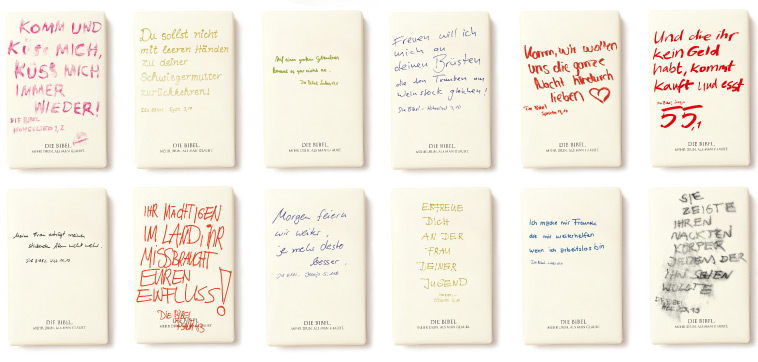 KOMM UND
KÜSS MICH,
KÜSS MICH
IMMER
WIEDER!
DIE BIBEL
HOHESLIED 1,2
DIE BIBEL.
MEHR DRIN, ALS MAN GLAUBT.
Du sollst nicht
mit leeren Händen
zu deiner
Schwiegermutter
zurückkehren!
Die Bibel
DIE BIBEL.
MEHR DRIN, ALS MAN GLAUBT.
Auf einen groben
kommt es gar nicht
Die Bibel
DIE BIBEL.
MEHR DRIN, ALS MAN GLAUBT.
Freuen will ich
mich an
deinen Brüsten
die den Trauben am
Weinstock gleichen!
Die Bibel
DIE BIBEL.
MEHR DRIN, ALS MAN GLAUBT.
Komm, wir wollen
uns die ganze
Nacht hindurch
lieben
Die Bibel
DIE BIBEL.
MEHR DRIN, ALS MAN GLAUBT.
Und die ihr
kein Geld
habt, kommt
kauft und esst
Die Bibel
55,1
DIE BIBEL.
MEHR DRIN, ALS MAN GLAUBT.
Meine Frau erträgt meinen
stinkenden Atem nicht mehr.
Die Bibel
DIE BIBEL.
MEHR DRIN, ALS MAN GLAUBT.
IHR MÄCHTIGEN
IM LAND, IHR
MISSBRAUCHT
EUREN
EINFLUSS!
DIE BIBEL
DIE BIBEL.
MEHR DRIN, ALS MAN GLAUBT.
Morgen feiern
wir weiter,
je mehr desto
besser.
Die Bibel
DIE BIBEL.
MEHR DRIN, ALS MAN GLAUBT.
ERFREUE
DICH
AN DER
FRAU
DEINER
JUGEND
DIE BIBEL.
MEHR DRIN, ALS MAN GLAUBT.
Ich mache mir Freunde
die mir weiterhelfen
wenn ich arbeitslos bin
Die Bibel
DIE BIBEL.
MEHR DRIN, ALS MAN GLAUBT.
SIE
ZEIGTE
IHREN
NACKTEN
KÖRPER
JEDEM DER
IHN SEHEN
WOLLTE
DIE BIBEL
DIE BIBEL.
MEHR DRIN, ALS MAN GLAUBT.